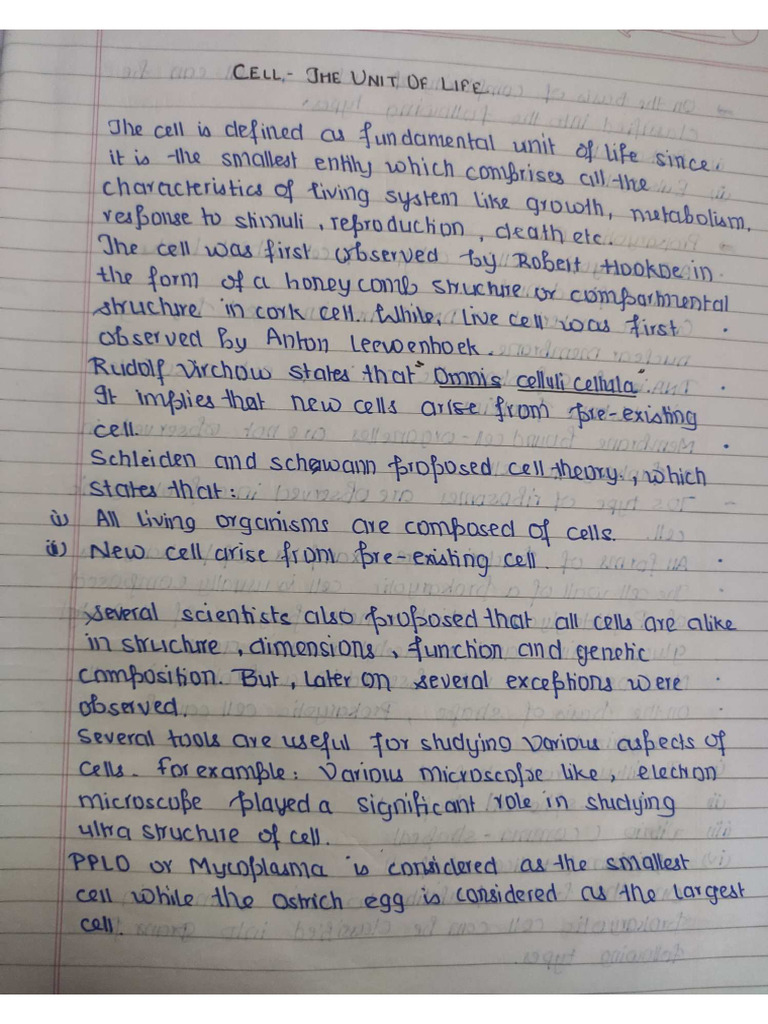 CELL,- THE UNIT OF LIFE
The cell is defined as fundamental unit of life since
it is the smallest entity which comprises all the
characteristics of living system like growth, metabolism,
response to stimuli, reproduction, death etc.
The cell was first observed by Robert Hookoe in
the form of a honey comb structure or comparmental
structure in cork cell. While, live cell was first
observed by Anton Leewenhoek.
Rudolf Virchow states that "Omnis celluli cellula".
It implies that new cells arise from pre-existing
cell.
Schleiden and schewann proposed cell theory, which
states that:
i) All living organisms are composed of cells.
ii) New cell arise from pre-existing cell.
Several scientists also proposed that all cells are alike
in structure, dimensions, function and genetic
composition. But, later on several exceptions were
observed.
Several tools are useful for studying various aspects of
cells. for example: various microscope like, electron
microscope played a significant role in studying
ultra structure of cell.
PPLO or Mycoplasma is considered as the smallest
cell while the Ostrich egg is considered as the largest
cell.